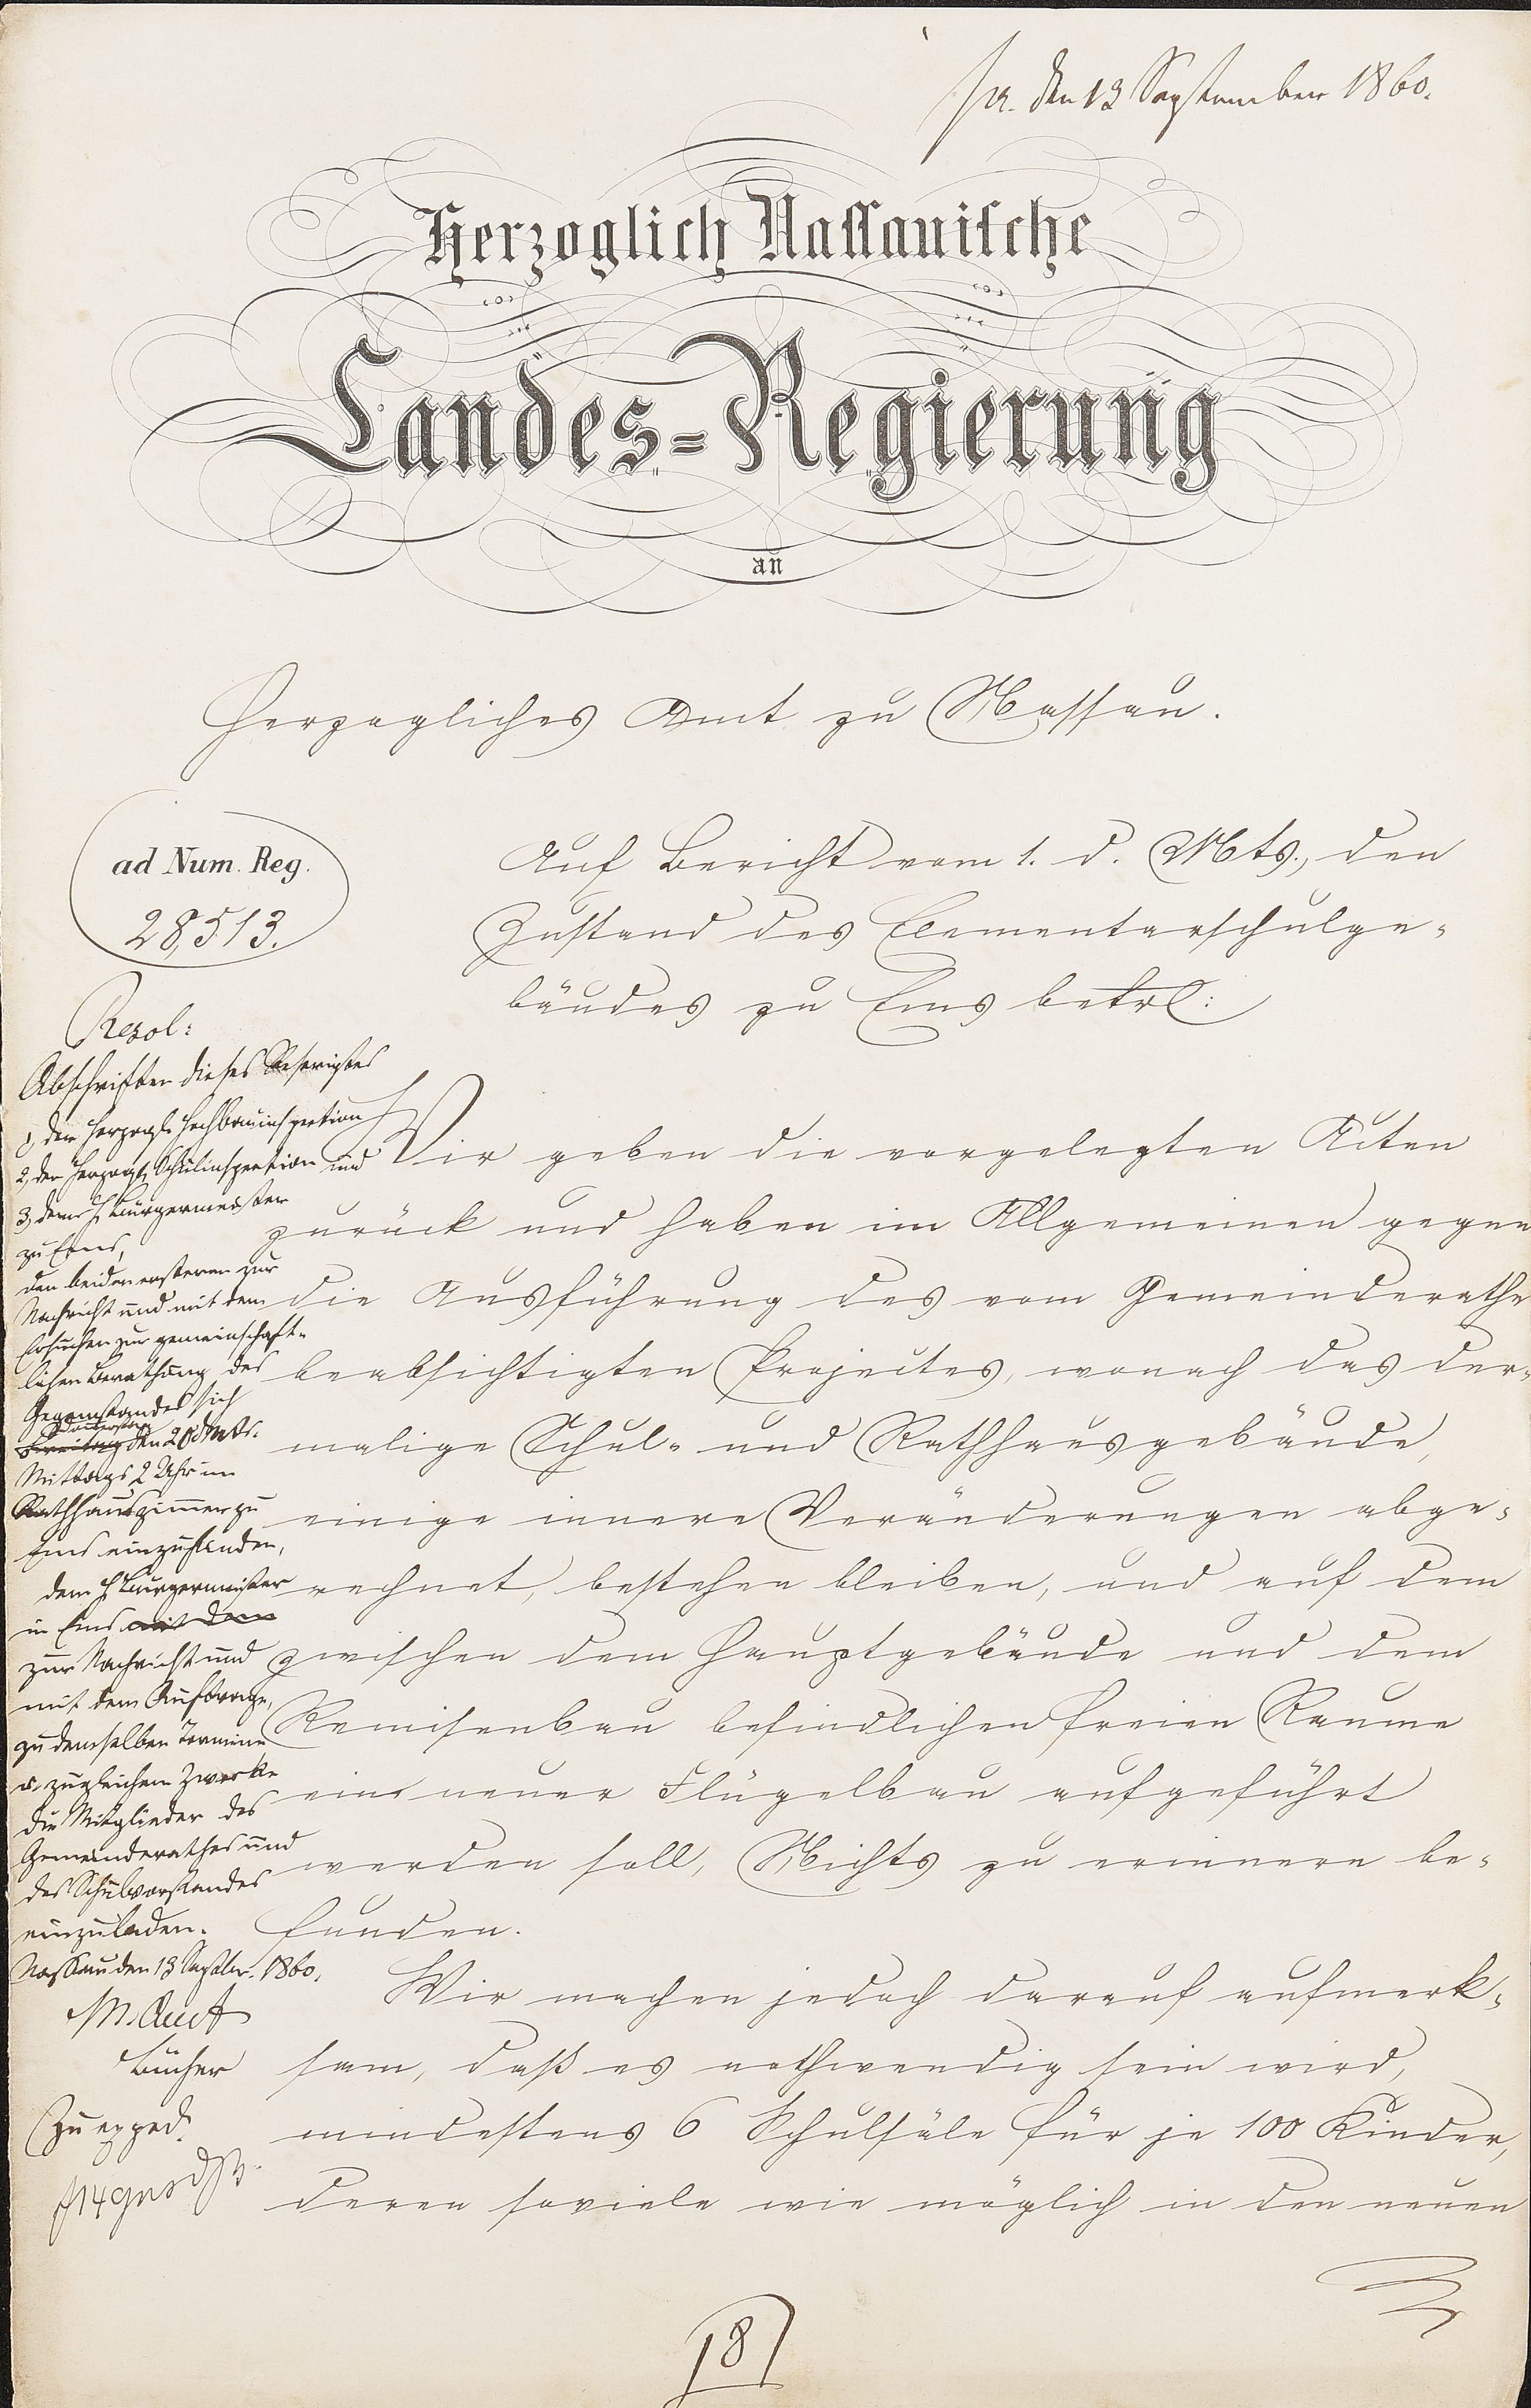 pr. den 13 September 1860.
Herzoglich Nassauische
Landes=Regierung
an
Herzogliches Amt zu Nassau.
ad Num. Reg.
28,513.
Auf Bericht vom 1. d. Mts., den
Zustand des Elementarschulge-
bäudes zu Ems betrl:
Wir geben die vorgelegten Akten
zurück und haben im Allgemeinen gegen
die Ausführung des vom Gemeinderathe
beabsichtigten Projectes, wonach das der-
malige Schul- und Rathhausgebäude,
einige innere Veränderungen abge-
rechnet, bestehen bleiben, und auf dem
zwischen dem Hauptgebäude und dem
Remisenbau befindlichen freien Raume
ein neuer Flügelbau aufgeführt
werden soll, Nichts zu erinnern be-
funden.
Wir machen jedoch darauf aufmerk-
sam, daß es nothwendig sein wird,
mindestens 6 Schulsäle für je 100 Kinder,
deren soviele wie möglich in den neuen
Resol:
Abschriften dieses Rescriptes
1, der Herzogl. Hochbauinspection
2, der Herzogl. Schulinspection und
3, dem H. Bürgermeister
zu Ems,
den beiden ersteren zur
Nachricht und mit dem
Ersuchen zur gemeinschaft-
lichen Berathung des
Gegenstandes sich
Donnerstag
Freitag den 20 d Mts.
Mittags 2 Uhr im
Rathhauszimmer zu
Ems einzufinden,
dem H. Bürgermeister
in Ems mit dem
zur Nachricht und
mit dem Auftrage,
zu demselben Termine
u. zu gleichem Zwecke
die Mitglieder des
Gemeinderathes und
des Schulvorstandes
einzuladen.
Nassau den 13 Septbr. 1860.
H. N. Amt
Bücher
Zu exped.
18